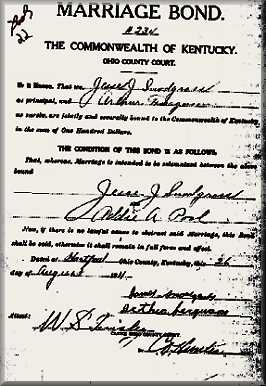 MARRIAGE BOND.
22
THE COMMONWEALTH OF KENTUCKY.
OHIO COUNTY COURT.
Be it Known, That we, Jesse J Snodgrass
as principal, and Arthur Ferguson
as surety, are jointly and severally bound to the Commonwealth of Kentucky
in the sum of One Hundred Dollars.
THE CONDITION OF THIS BOND IS AS FOLLOWS.
That, whereas, Marriage is intended to be solemnized between the above
bound
Jesse J Snodgrass
and Addie A Pool
Now, if there is no lawful cause to obstruct said Marriage, this Bond
shall be void, otherwise it shall remain in full force and effect.
Dated at Hartford Ohio County, Kentucky, this 26
day of August 1911.
Snodgrass
Arthur Ferguson
Attest:
W. S. Tinsley
CLERK OHIO COUNTY COURT.